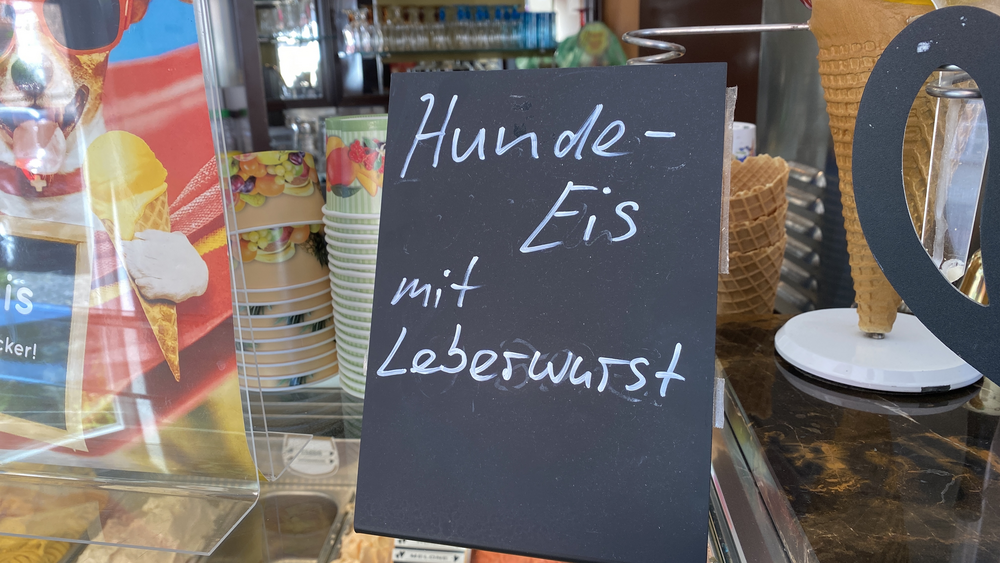 Hunde-
Eis
mit
Leberwurst
is
cker!
MELONE